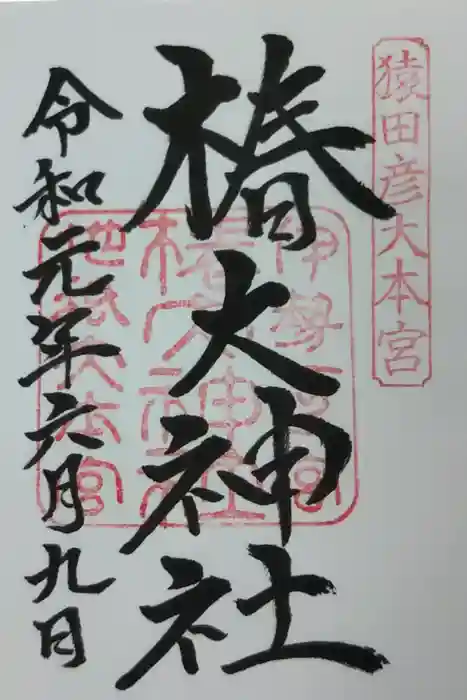 猿田彦大本宮
椿大神社
令和元年六月九日
伊勢一宮
椿大神社
地祇大本宮